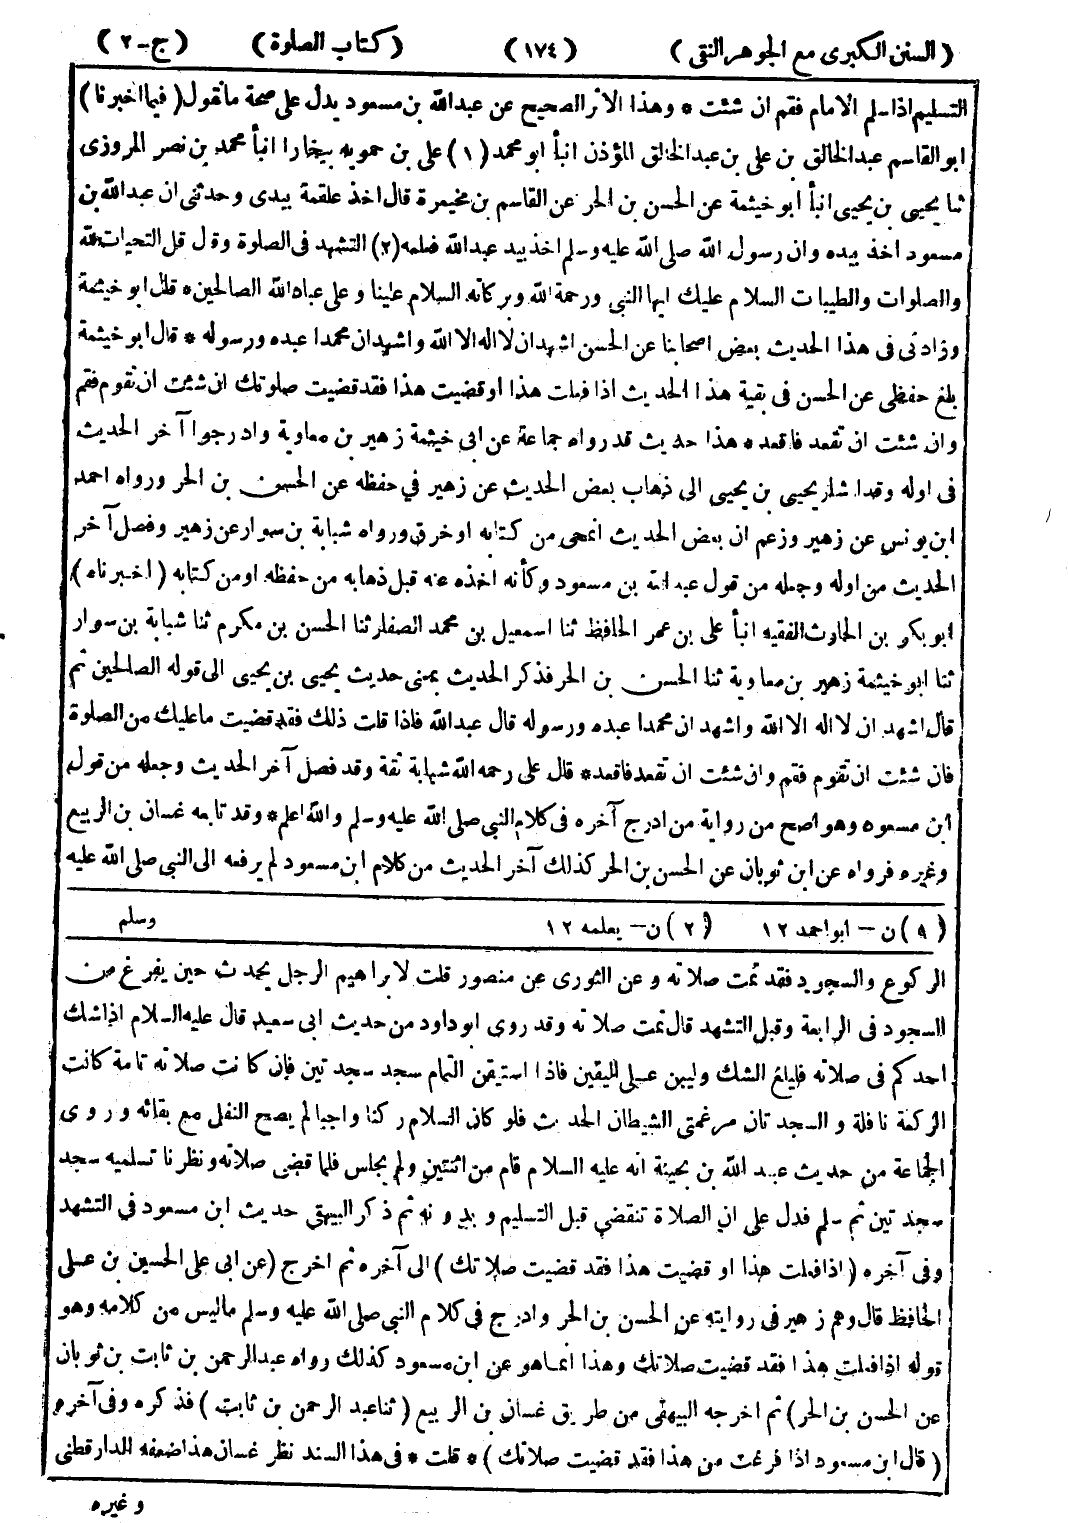 ( السنن الكبرى مع الجوهر النقى ) ( ١٧٤ ) ( كتاب الصلوة ) ( ج-٢ )
التسليم اذا سلم الامام فقم ان شئت * وهذا الاثر الصحيح عن عبدالله بن مسعود يدل على صحة ما نقول ( فيما اخبرنا )
ابو القاسم عبدالخالق بن على بن عبدالخالق المؤذن انبأ ابو محمد ( ١ ) على بن حمويه ببخارا انبأ محمد بن نصر المروزى
ثنا يحيى بن يحيى انبأ ابو خيثمة عن الحسن بن الحر عن القاسم بن مخيمرة قال اخذ علقمة بيدى وحدثنى ان عبدالله بن
مسعود اخذ بيده وان رسول الله صلى الله عليه وسلم اخذ بيد عبدالله فعلمه (٢) التشهد فى الصلوة وقال قل التحيات لله
والصلوات والطيبات السلام عليك ايها النبي ورحمة الله وبركاته السلام علينا وعلى عباد الله الصالحين * قال ابو خيثمة
وزادنى فى هذا الحديث بعض اصحابنا عن الحسن اشهد ان لا اله الا الله واشهد ان محمدا عبده ورسوله * قال ابو خيثمة
بلغ حفظى عن الحسن فى بقية هذا الحديث اذا فعلت هذا او قضيت هذا فقد قضيت صلوتك ان شئت ان تقوم فقم
وان شئت ان تقعد فاقعد * هذا حديث قد رواه جماعة عن ابى خيثمة زهير بن معاوية وادرجوا آخر الحديث
فى اوله وقد اشار يحيى بن يحيى الى ذهاب بعض الحديث عن زهير في حفظه عن الحسن بن الحر ورواه احمد
ابن يونس عن زهير وزعم ان بعض الحديث انمحى من كتابه او خرق ورواه شبابة بن سوار عن زهير وفصل آخر
الحديث من اوله وجعله من قول عبد الله بن مسعود وكأنه اخذه عنه قبل ذهابه من حفظه او من كتابه ( اخبرناه )
ابو بكر بن الحارث الفقيه انبأ على بن عمر الحافظ ثنا اسمعيل بن محمد الصفار ثنا الحسن بن مكرم ثنا شبابة بن سوار
ثنا ابو خيثمة زهير بن معاوية ثنا الحسن بن الحر فذكر الحديث بمعنى حديث يحيى بن يحيى الى قوله الصالحين ثم
قال اشهد ان لا اله الا الله واشهد ان محمدا عبده ورسوله قال عبدالله فاذا قلت ذلك فقد قضيت ما عليك من الصلوة
فان شئت ان تقوم فقم وان شئت ان تقعد فاقعد * قال على رحمه الله شبابة ثقة وقد فصل آخر الحديث وجعله من قول
ابن مسعود وهو اصح من رواية من ادرج آخره فى كلام النبي صلى الله عليه وسلم والله اعلم * وقد تابعه غسان بن الربيع
وغيره فرواه عن ابن ثوبان عن الحسن بن الحر كذلك آخر الحديث من كلام ابن مسعود لم يرفعه الى النبي صلى الله عليه
( ٩ ) ن - ابو احمد ١٢ ( ٢ ) ن - يعلمه ١٢ وسلم
الركوع والسجود فقد تمت صلاته وعن الثورى عن منصور قلت لابراهيم الرجل يحدث حين يفرغ من
السجود فى الرابعة وقبل التشهد قال تمت صلاته وقد روى ابو داود من حديث ابى سعيد قال عليه السلام اذا شك
احدكم فى صلاته فليلغ الشك وليبن على اليقين فاذا استيقن التمام سجد سجدتين فان كانت صلاته تامة كانت
الركعة نافلة والسجدتان مرغمتى الشيطان الحديث فلو كان السلام ركنا واجبا لم يصح النفل مع بقائه وروى
الجماعة من حديث عبد الله بن بحينة انه عليه السلام قام من اثنتين ولم يجلس فلما قضى صلاته ونظرنا تسليمه سجد
سجدتين ثم سلم فدل على ان الصلاة تنقضى قبل التسليم وبدونه ثم ذكر البيهقى حديث ابن مسعود في التشهد
وفى آخره ( اذا فعلت هذا او قضيت هذا فقد قضيت صلاتك ) الى آخره ثم اخرج ( عن ابى على الحسين بن على
الحافظ قال وهم زهير فى روايته عن الحسن بن الحر وادرج فى كلام النبي صلى الله عليه وسلم ما ليس من كلامه وهو
قوله اذا فعلت هذا فقد قضيت صلاتك وهذا انما هو عن ابن مسعود كذلك رواه عبدالرحمن بن ثابت بن ثوبان
عن الحسن بن الحر ) ثم اخرجه البيهقى من طريق غسان بن الربيع ( ثنا عبد الرحمن بن ثابت ) فذكره وفى آخره
( قال ابن مسعود اذا فرغت من هذا فقد قضيت صلاتك ) * قلت * فى هذا السند نظر غسان هذا ضعفه الدارقطنى
وغيره